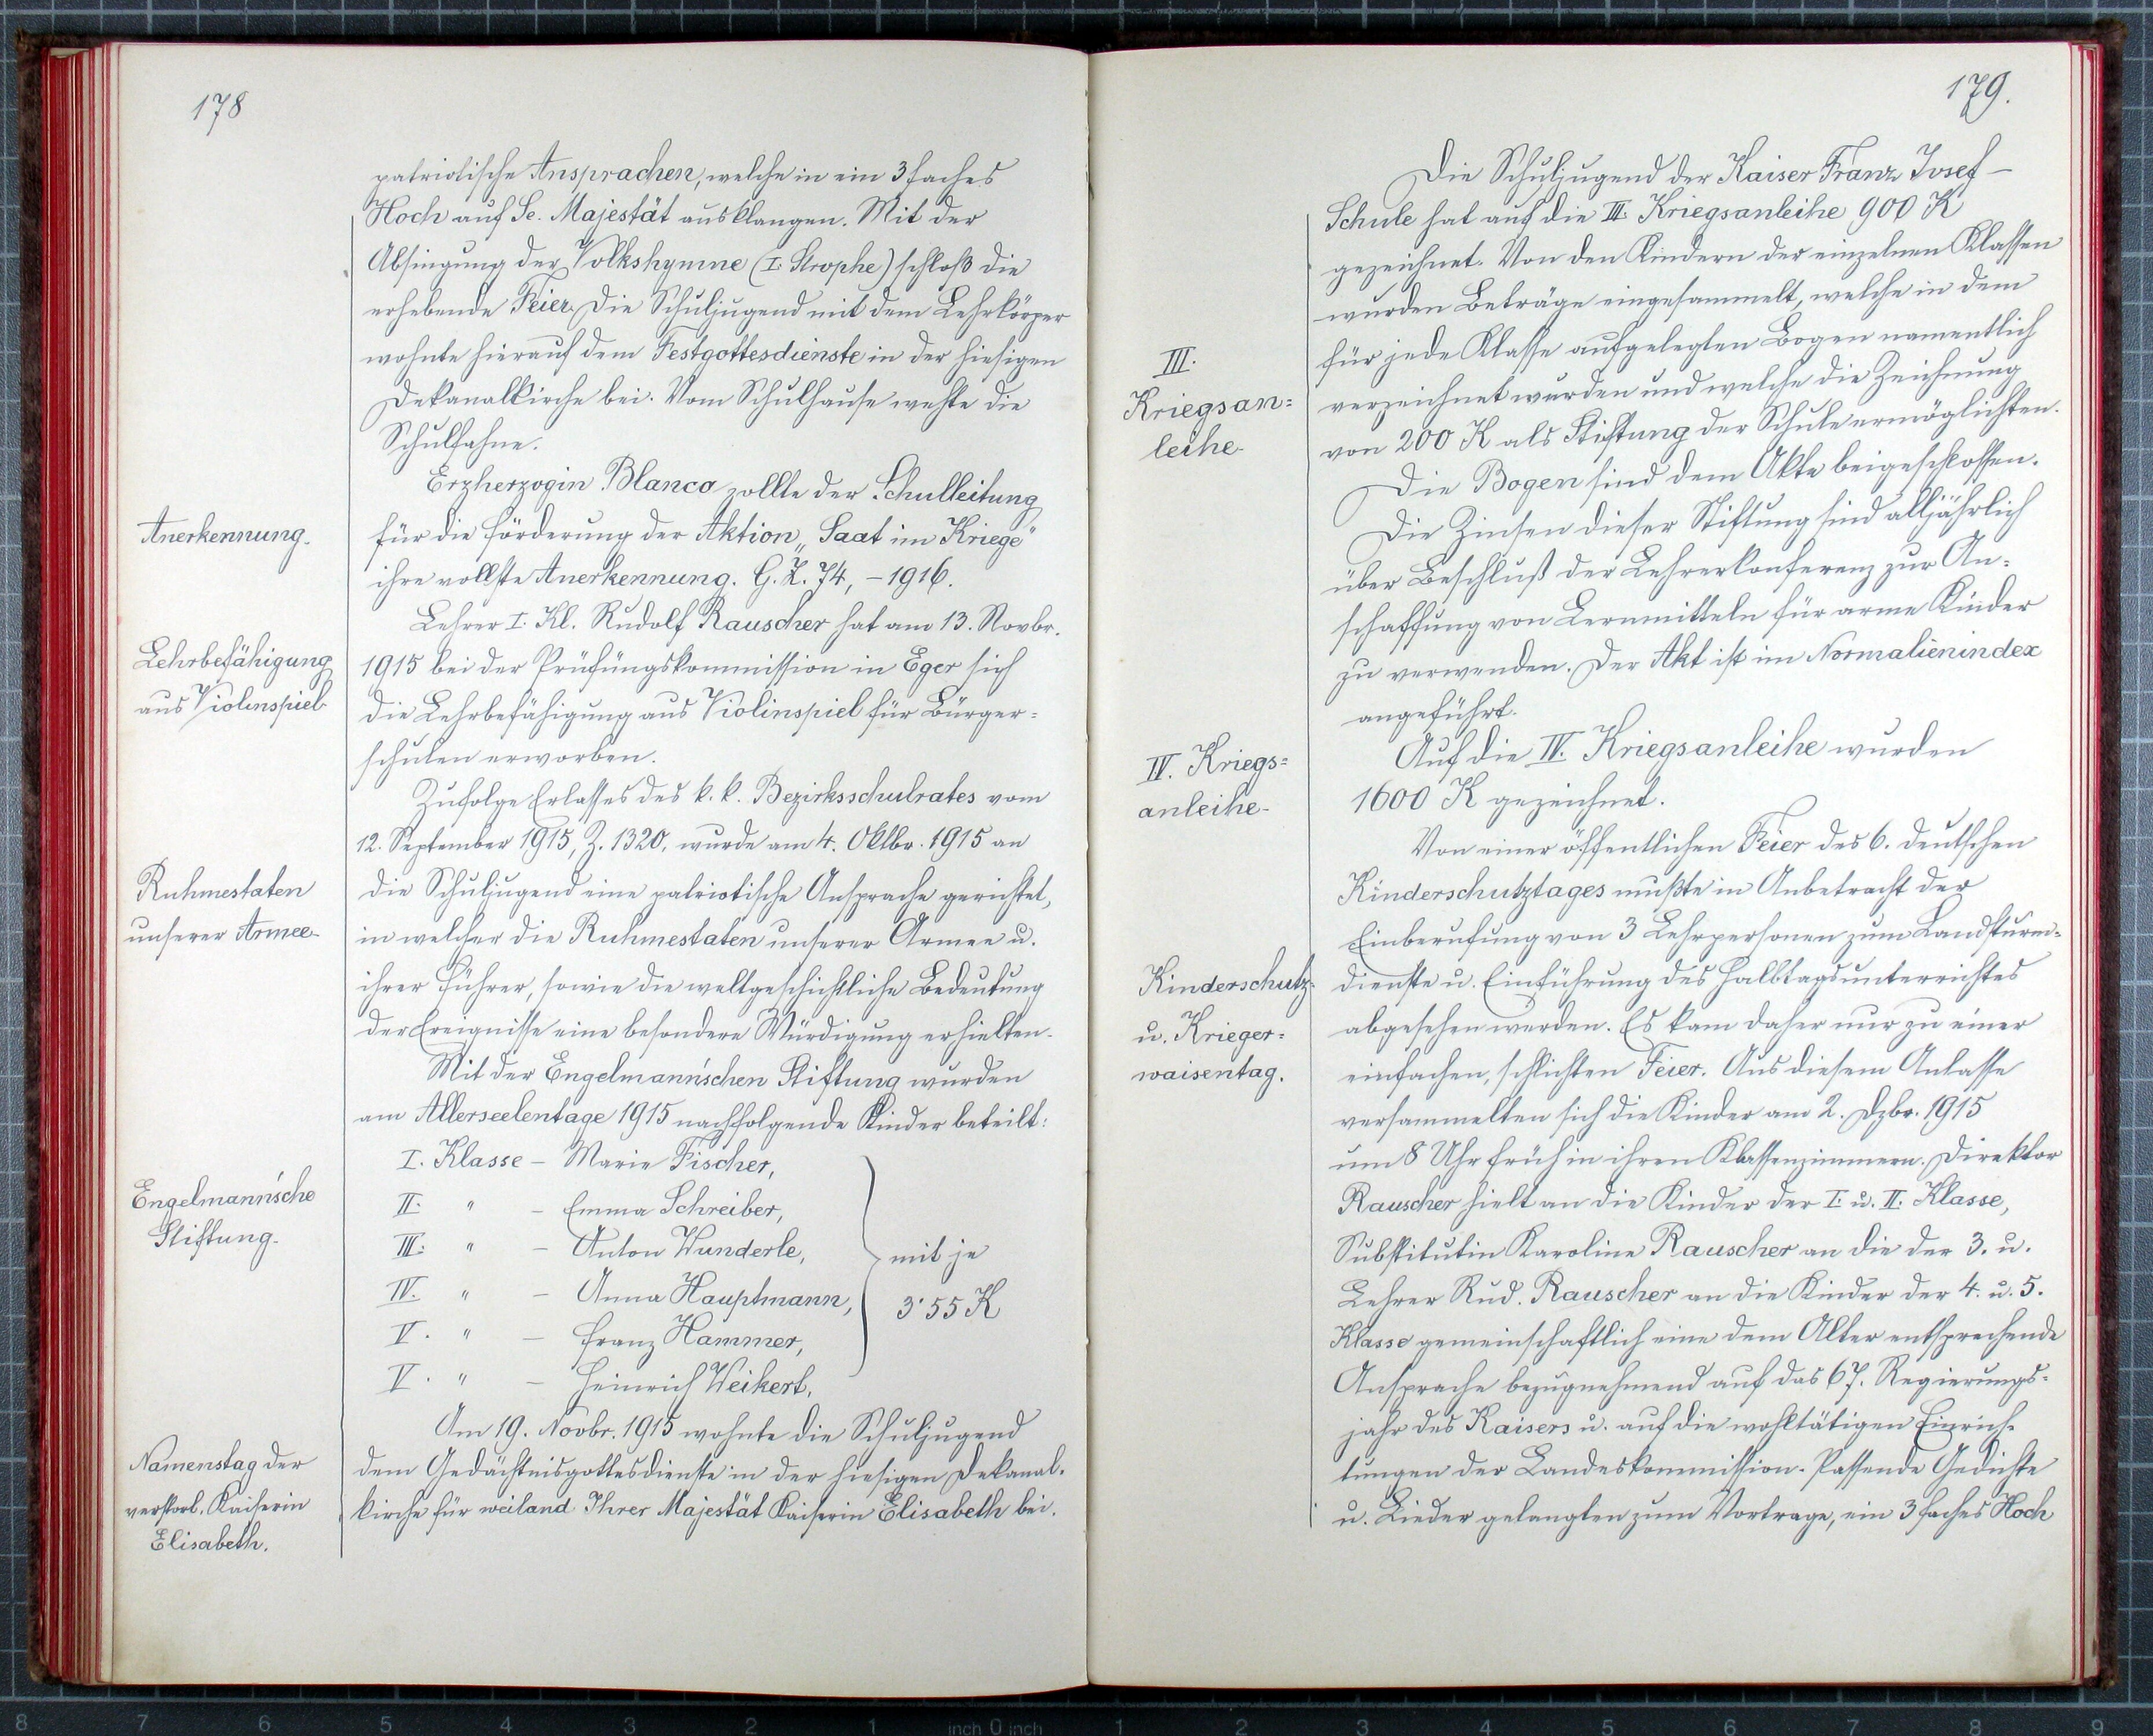 178
patriotische Ansprachen, welche in ein 3faches
Hoch auf Se. Majestät ausklangen. Mit der
Absingung der Volkshymne (I. Strophe) schloß die
erhebende Feier. Die Schuljugend mit dem Lehrkörper
wohnte hierauf dem Festgottesdienste in der hiesigen
Dekanalkirche bei. Vom Schulhause wehte die
Schulfahne.
Anerkennung.
Erzherzogin Blanca zollte der Schulleitung
für die Förderung der Aktion „Saat im Kriege"
ihre vollste Anerkennung. G. Z. 74, – 1916.
Lehrbefähigung
aus Violinspiel
Lehrer I. Kl. Rudolf Rauscher hat am 13. Novbr.
1915 bei der Prüfungskommission in Eger sich
die Lehrbefähigung aus Violinspiel für Bürger=
schulen erworben.
Ruhmestaten
unserer Armee
Zufolge Erlasses des k. k. Bezirksschulrates vom
12. September 1915, Z. 1320, wurde am 4. Oktbr. 1915 an
die Schuljugend eine patriotische Ansprache gerichtet,
in welcher die Ruhmestaten unserer Armee u.
ihrer Führer, sowie die weltgeschichtliche Bedeutung
der Ereignisse eine besondere Würdigung erhielten.
Engelmann'sche
Stiftung.
Mit der Engelmann'schen Stiftung wurden
am Allerseelentage 1915 nachfolgende Kinder beteilt:
I. Klasse – Marie Fischer,
II. " – Emma Schreiber,
III. " – Anton Wunderle,
IV. " – Anna Hauptmann,
V. " – Franz Hammer,
V. " – Heinrich Weikert,
mit je
3·55 K
Namenstag der
verstorb. Kaiserin
Elisabeth.
Am 19. Novbr. 1915 wohnte die Schuljugend
dem Gedächtnisgottesdienste in der hiesigen Dekanal=
kirche für weiland Ihrer Majestät Kaiserin Elisabeth bei.
179.
III.
Kriegsan=
leihe
Die Schuljugend der Kaiser Franz Josef –
Schule hat auf die III. Kriegsanleihe 900 K
gezeichnet. Von den Kindern der einzelnen Klassen
wurden Beträge eingesammelt, welche in dem
für jede Klasse aufgelegten Bogen namentlich
verzeichnet wurden und welche die Zeichnung
von 200 K als Stiftung der Schule ermöglichten.
Die Bogen sind dem Akte beigeschlossen.
Die Zinsen dieser Stiftung sind alljährlich
über Beschluß der Lehrerkonferenz zur An=
schaffung von Lernmitteln für arme Kinder
zu verwenden. Der Akt ist im Normalienindex
angeführt.
IV. Kriegs=
anleihe
Auf die IV. Kriegsanleihe wurden
1600 K gezeichnet.
Kinderschutz=
u. Krieger=
waisentag.
Von einer öffentlichen Feier des 6. deutschen
Kinderschutztages mußte in Anbetracht der
Einberufung von 3 Lehrpersonen zum Landsturm=
dienste u. Einführung des Halbtagsunterrichtes
abgesehen werden. Es kam daher nur zu einer
einfachen, schlichten Feier. Aus diesem Anlasse
versammelten sich die Kinder am 2. Dzbr. 1915
um 8 Uhr früh in ihren Klassenzimmern. Direktor
Rauscher hielt an die Kinder der I. u. II. Klasse,
Substitutin Karoline Rauscher an die der 3. u.
Lehrer Rud. Rauscher an die Kinder der 4. u. 5.
Klasse gemeinschaftlich eine dem Alter entsprechende
Ansprache bezugnehmend auf das 67. Regierungs=
jahr des Kaisers u. auf die wohltätigen Einrich=
tungen der Landeskommission. Passende Gedichte
u. Lieder gelangten zum Vortrage, ein 3faches Hoch
8 7 6 5 4 3 2 1 inch 0 inch 1 2 3 4 5 6 7 8 9